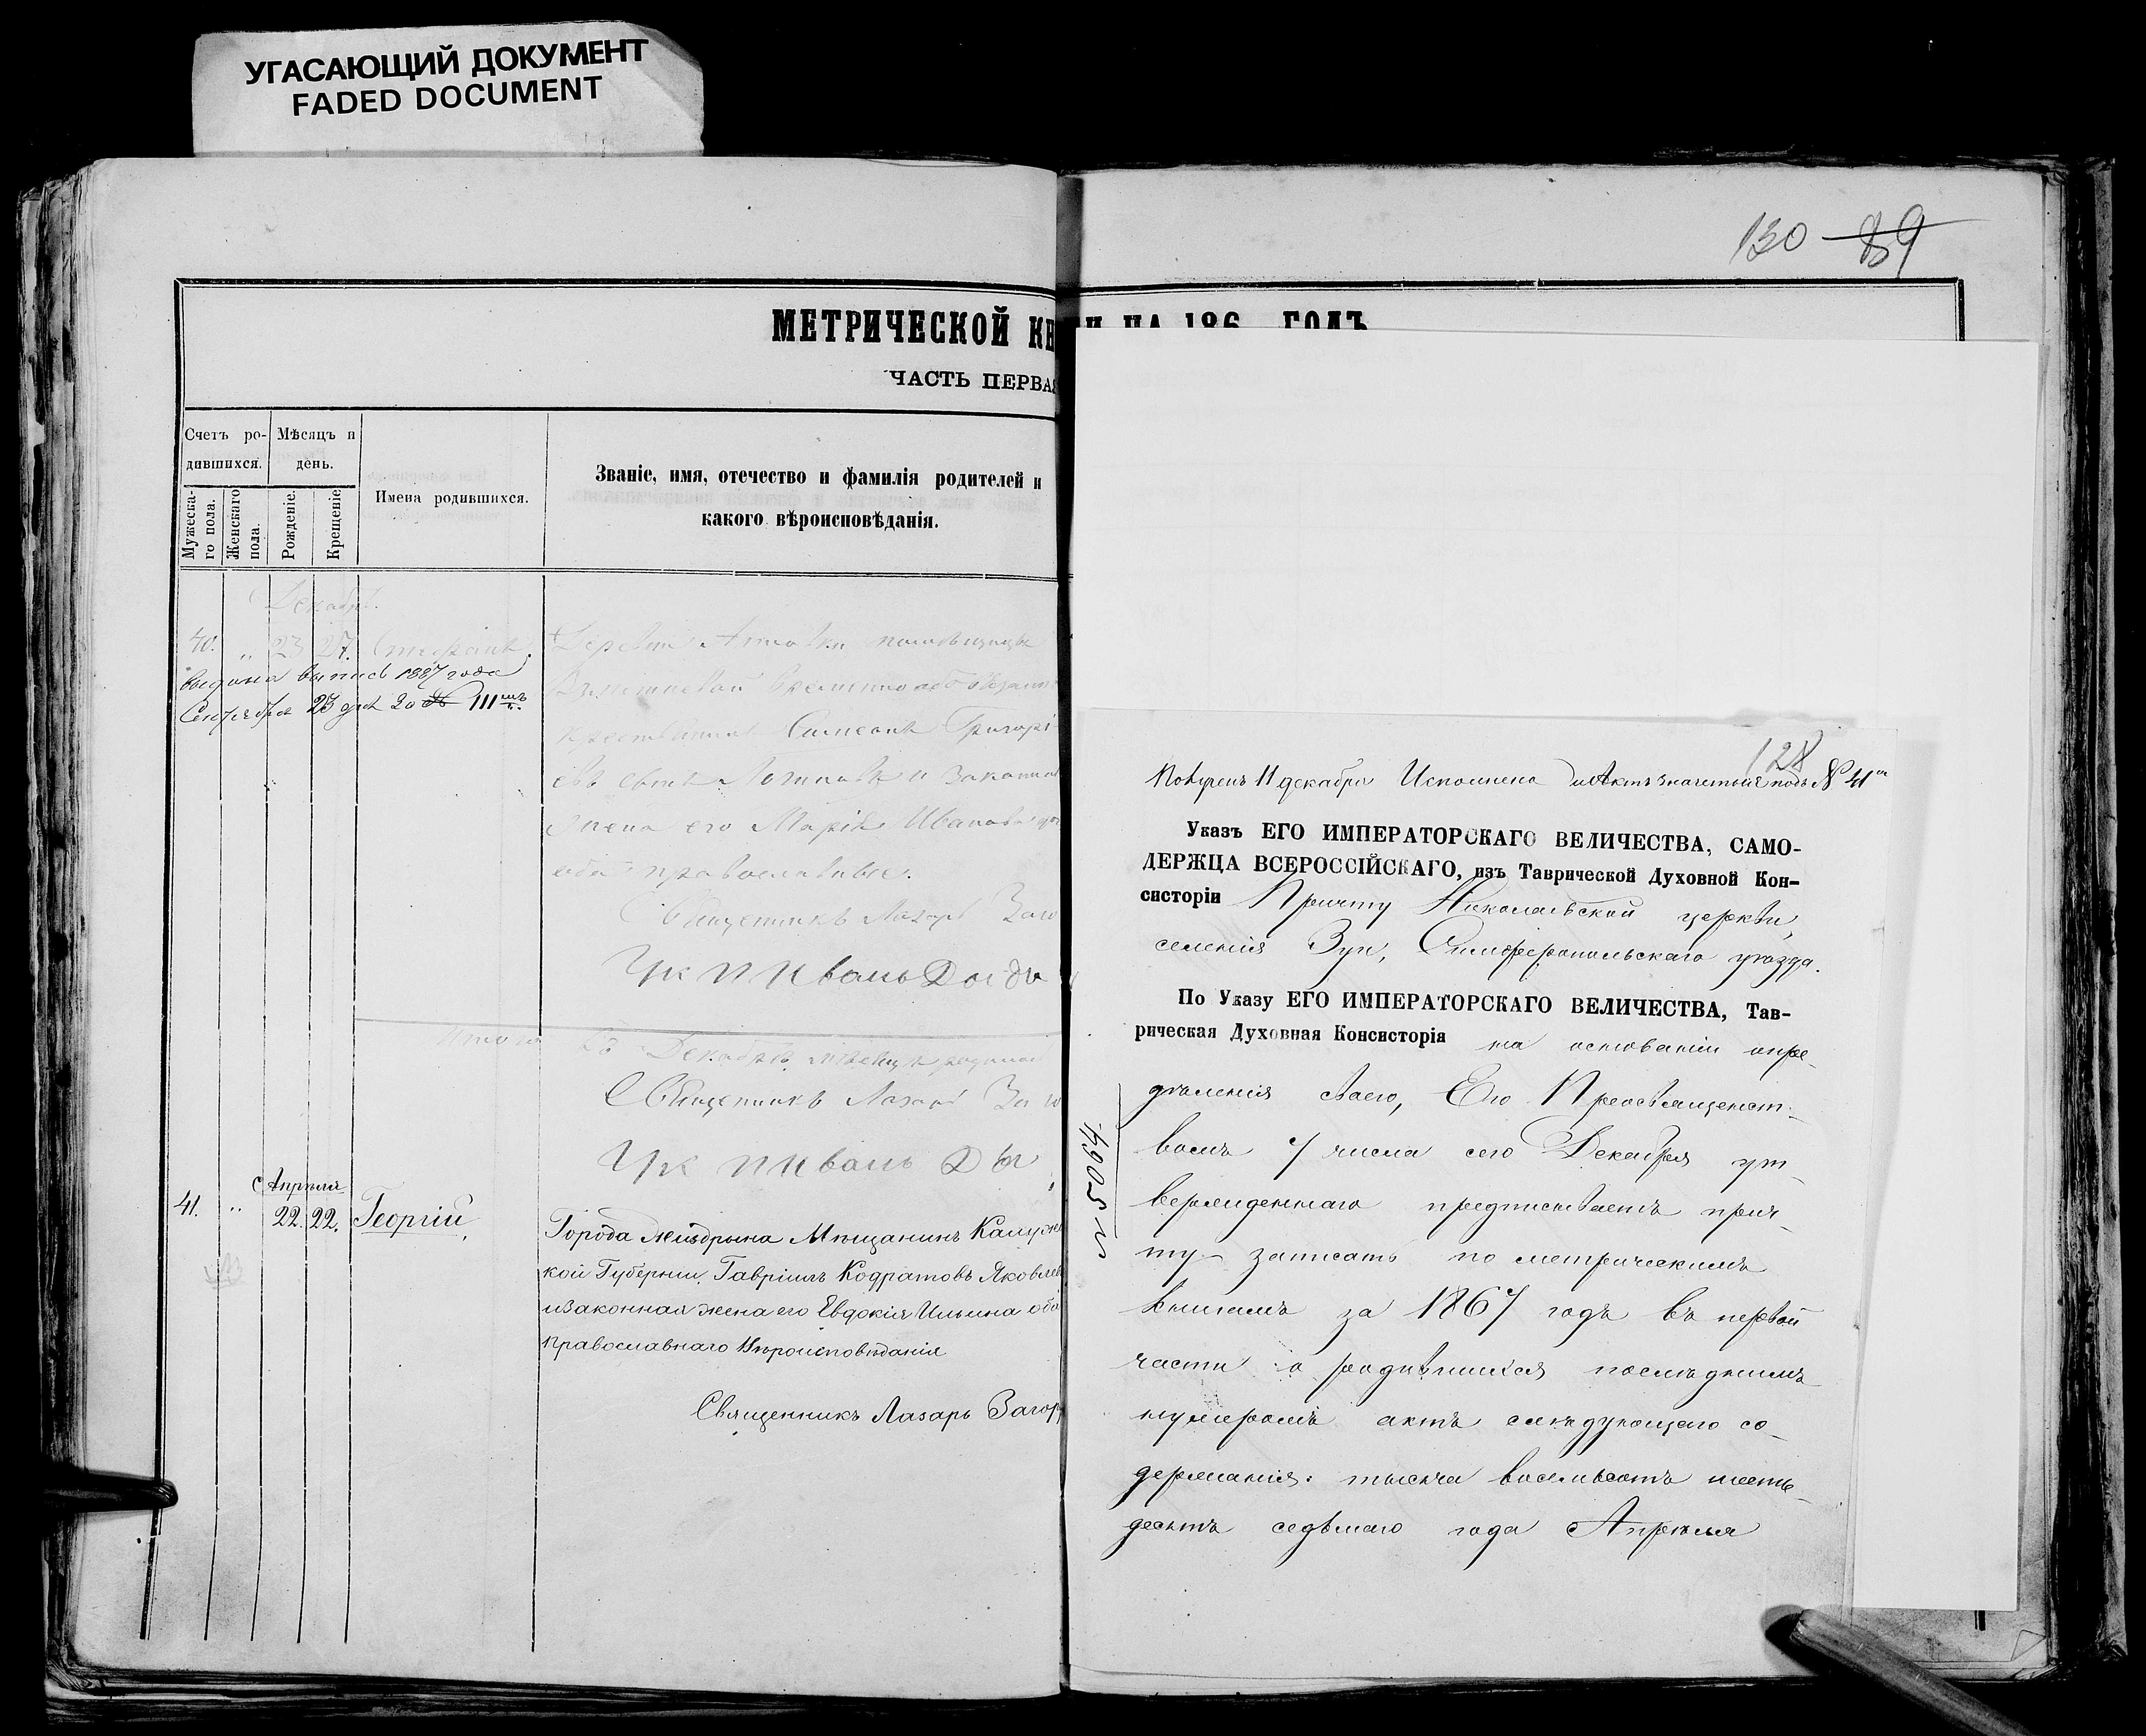 УГАСАЮЩИЙ ДОКУМЕНТ
FADED DOCUMENT
130 89
МЕТРИЧЕСКОЙ КН
ЧАСТЬ ПЕРВАЯ
ГОДЪ
Счетъ ро-
дившихся.
Мѣсяцъ и
день.
Мужеска-
го пола.
Женскаго
пола.
Рожденіе.
Крещеніе
Имена родившихся.
Званіе, имя, отечество и фамилія родителей и
какого вѣроисповѣданія.
Декабрь.
40. " 23 27. Стефанъ.
Выдана выпись 1887 года
Сентября 23 дня за № 111
Деревни
временно
Симеонъ Григорі
евъ сынъ и законная
жена его Марія Иванова
оба православные.
Священникъ Лазарь Заго
Иванъ
Итого въ Декабрѣ мѣсяцѣ
Священникъ Лазарь Заго
Иванъ
Апрѣля
41. " 22. 22. Георгій
Города Жиздрына Мѣщанинъ Калуж
кой Губерніи, Гавріилъ Кодратовъ Яковлев
и законная жена его Евдокія Ильина оба
православнаго Вѣроисповѣданія
Священникъ Лазарь Загор
128
Получен 11 декабря Исполнено и Актъ подъ № 41
Указъ ЕГО ИМПЕРАТОРСКАГО ВЕЛИЧЕСТВА, САМО-
ДЕРЖЦА ВСЕРОССІЙСКАГО, изъ Таврической Духовной Кон-
систоріи Причту Николаевской церкви,
селенія Зуи, Симферопольскаго уѣзда.
По Указу ЕГО ИМПЕРАТОРСКАГО ВЕЛИЧЕСТВА, Тав-
рическая Духовная Консисторія на основаніи опре-
дѣленія своего, Его Преосвященст-
вомъ 7 числа сего Декабря ут-
вержденнаго предписываетъ прич-
ту записать по метрическимъ
книгамъ за 1867 годъ въ первой
части о родившихся послѣднимъ
нумеромъ актъ слѣдующаго со-
держанія: тысяча восемьсотъ шесть-
десятъ седьмаго года Апрѣля